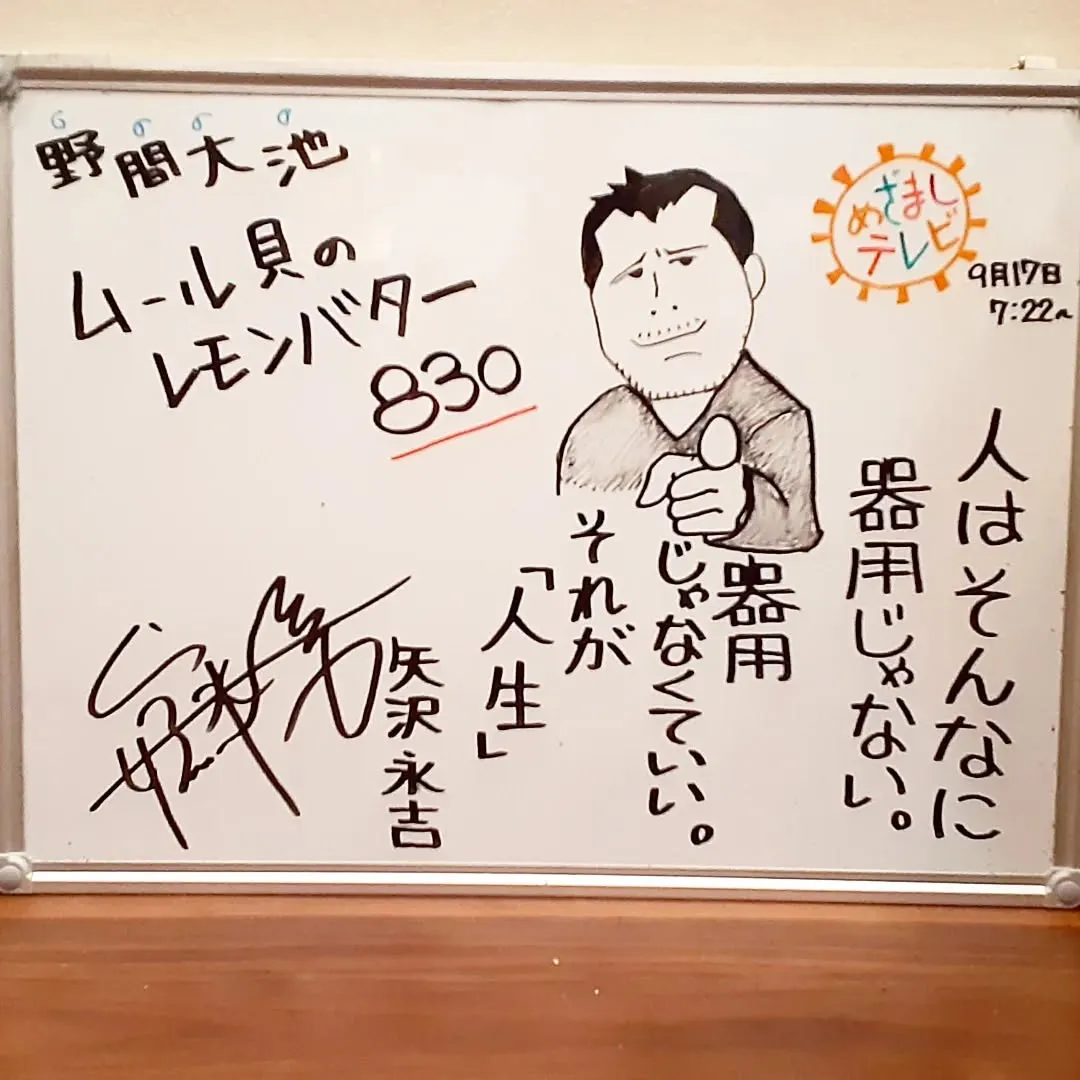 野間大池
ムール貝の
レモンバター
830
めざまし
テレビ
9月17日
7:22~
人はそんなに
器用じゃない。
器用
じゃなくていい。
それが
「人生」
矢沢永吉